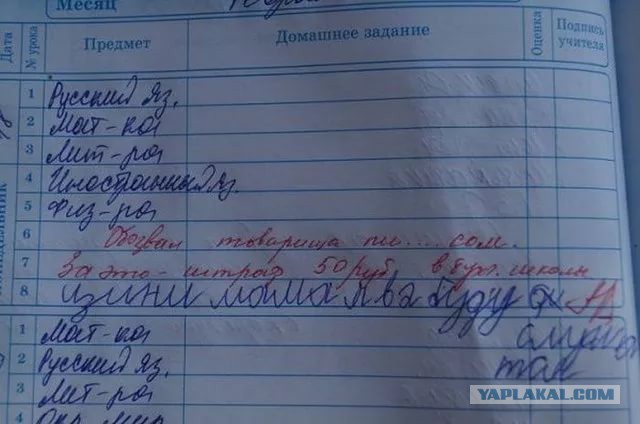 Месяц
Дата № урока Предмет Домашнее задание Оценка Подпись учителя
1 Русский яз.
2 Мат-ка
3 Лит-ра
4 Иностранный яз.
5 Физ-ра
6 Обозвал товарища пи....сом.
7 За это - штраф 50 руб. в бух. школы
8 изини мама я ва буду
1 Мат-ка
2 Русский яз.
3 Лит-ра
4 Окр. мир
YAPLAKAL.COM